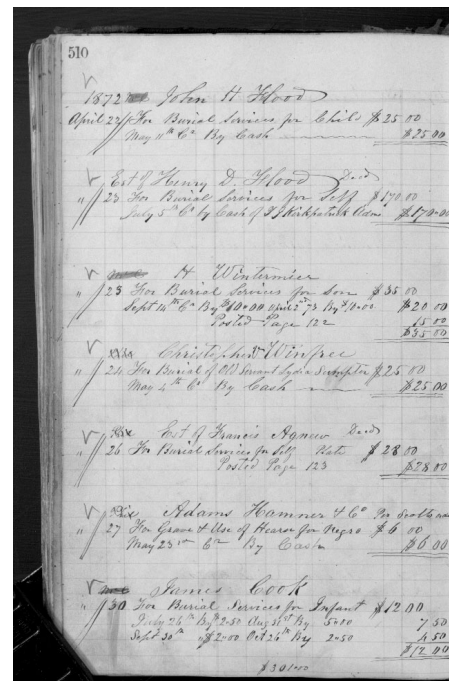 510
1872 John H Flood
April 22 For Burial Services for Child $25 00
May 11th Cr By Cash $25 00
Est of Henry D Flood Decd
" 23 For Burial Services for Self $170.00
July 5th Cr by Cash of T J Kirkpatrick Adm $170=00
H Wintermier
" 23 For Burial Services for Son $35 00
Sept 14th Cr By $10=00 April 2nd 73 By $10=00 $20 00
Posted Page 122 15 00
$35 00
Christopher Winfree
" 24 For Burial of Old Servant Lydia $25 00
May 4th Cr By Cash $25 00
Est of Francis Agnew Decd
" 26 For Burial Services for Self Note $28 00
Posted Page 123 $28 00
Adams Hamner & Co For
" 27 For Grave & Use of Hearse for Negro $6 00
May 23rd Cr By Cash $6 00
James Cook
" 30 For Burial Services for Infant $12 00
July 26th By 2=50 Aug 31st By 5=00 7 50
Sept 30th " $2=00 Oct 26th By 2=50 4 50
$12 00